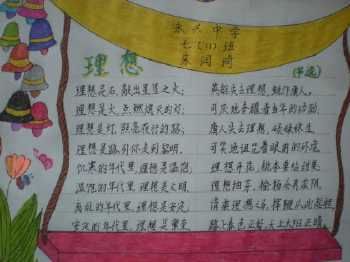 永兴中学
七(11)班
理想
(节选)
理想是石,敲出星星之火;
理想是火,点燃熄灭的灯;
理想是灯,照亮夜行的路;
理想是路,引你走到黎明。
饥寒的年代里,理想是温饱;
温饱的年代里,理想是文明。
离乱的年代里,理想是安定;
安定的年代里,理想是繁荣
英雄失去理想,蜕作庸人,
可厌地夸耀着当年的功勋;
庸人失去理想,碌碌终生,
可笑地诅咒着眼前的环境。
理想开花,桃李要结甜果;
理想抽芽,榆杨会有浓阴。
请乘理想之马,挥鞭从此起程,
路上春色正好,天上太阳正晴。